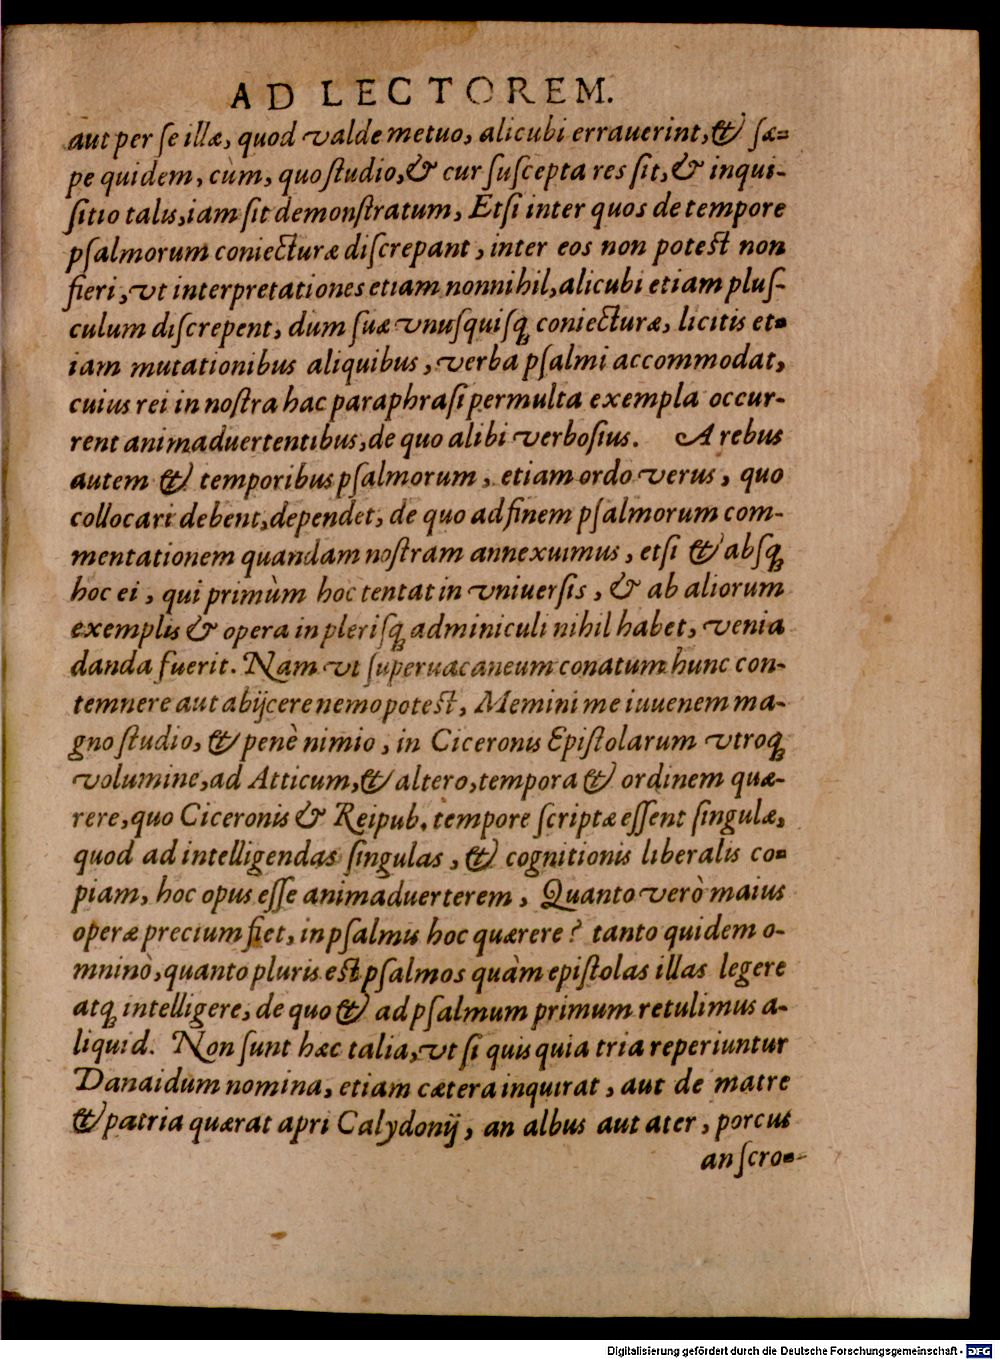 AD LECTOREM.
aut per se illæ, quod valde metuo, alicubi errauerint, & sæ-
pe quidem, cùm, quo studio, & cur suscepta res sit, & inqui-
sitio talis, iam sit demonstratum, Etsi inter quos de tempore
psalmorum coniecturæ discrepant, inter eos non potest non
fieri, vt interpretationes etiam nonnihil, alicubi etiam plus-
culum discrepent, dum suæ vnusquisq; coniecturæ, licitis et-
iam mutationibus aliquibus, verba psalmi accommodat,
cuius rei in nostra hac paraphrasi permulta exempla occur-
rent animaduertentibus, de quo alibi verbosius. A rebus
autem & temporibus psalmorum, etiam ordo verus, quo
collocari debent, dependet, de quo ad finem psalmorum com-
mentationem quandam nostram annexuimus, etsi & absq;
hoc ei, qui primùm hoc tentat in vniuersis, & ab aliorum
exemplis & opera in plerisq; adminiculi nihil habet, venia
danda fuerit. Nam vt superuacaneum conatum hunc con-
temnere aut abijcere nemo potest, Memini me iuuenem ma-
gno studio, & penè nimio, in Ciceronis Epistolarum vtroq;
volumine, ad Atticum, & altero, tempora & ordinem quæ-
rere, quo Ciceronis & Reipub. tempore scriptæ essent singulæ,
quod ad intelligendas singulas, & cognitionis liberalis co-
piam, hoc opus esse animaduerterem, Quanto verò maius
operæ precium fiet, in psalmis hoc quærere? tanto quidem o-
mninò, quanto pluris est psalmos quàm epistolas illas legere
atq; intelligere, de quo & ad psalmum primum retulimus a-
liquid. Non sunt hæc talia, vt si quis quia tria reperiuntur
Danaidum nomina, etiam cætera inquirat, aut de matre
& patria quærat apri Calydonij, an albus aut ater, porcus
an scro-
Digitalisierung gefördert durch die Deutsche Forschungsgemeinschaft - DFG